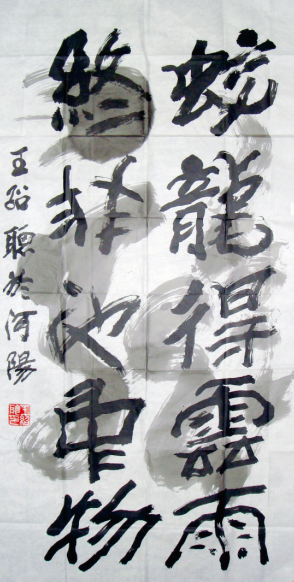 蛟龍得雲雨
終非池中物
王 於河陽